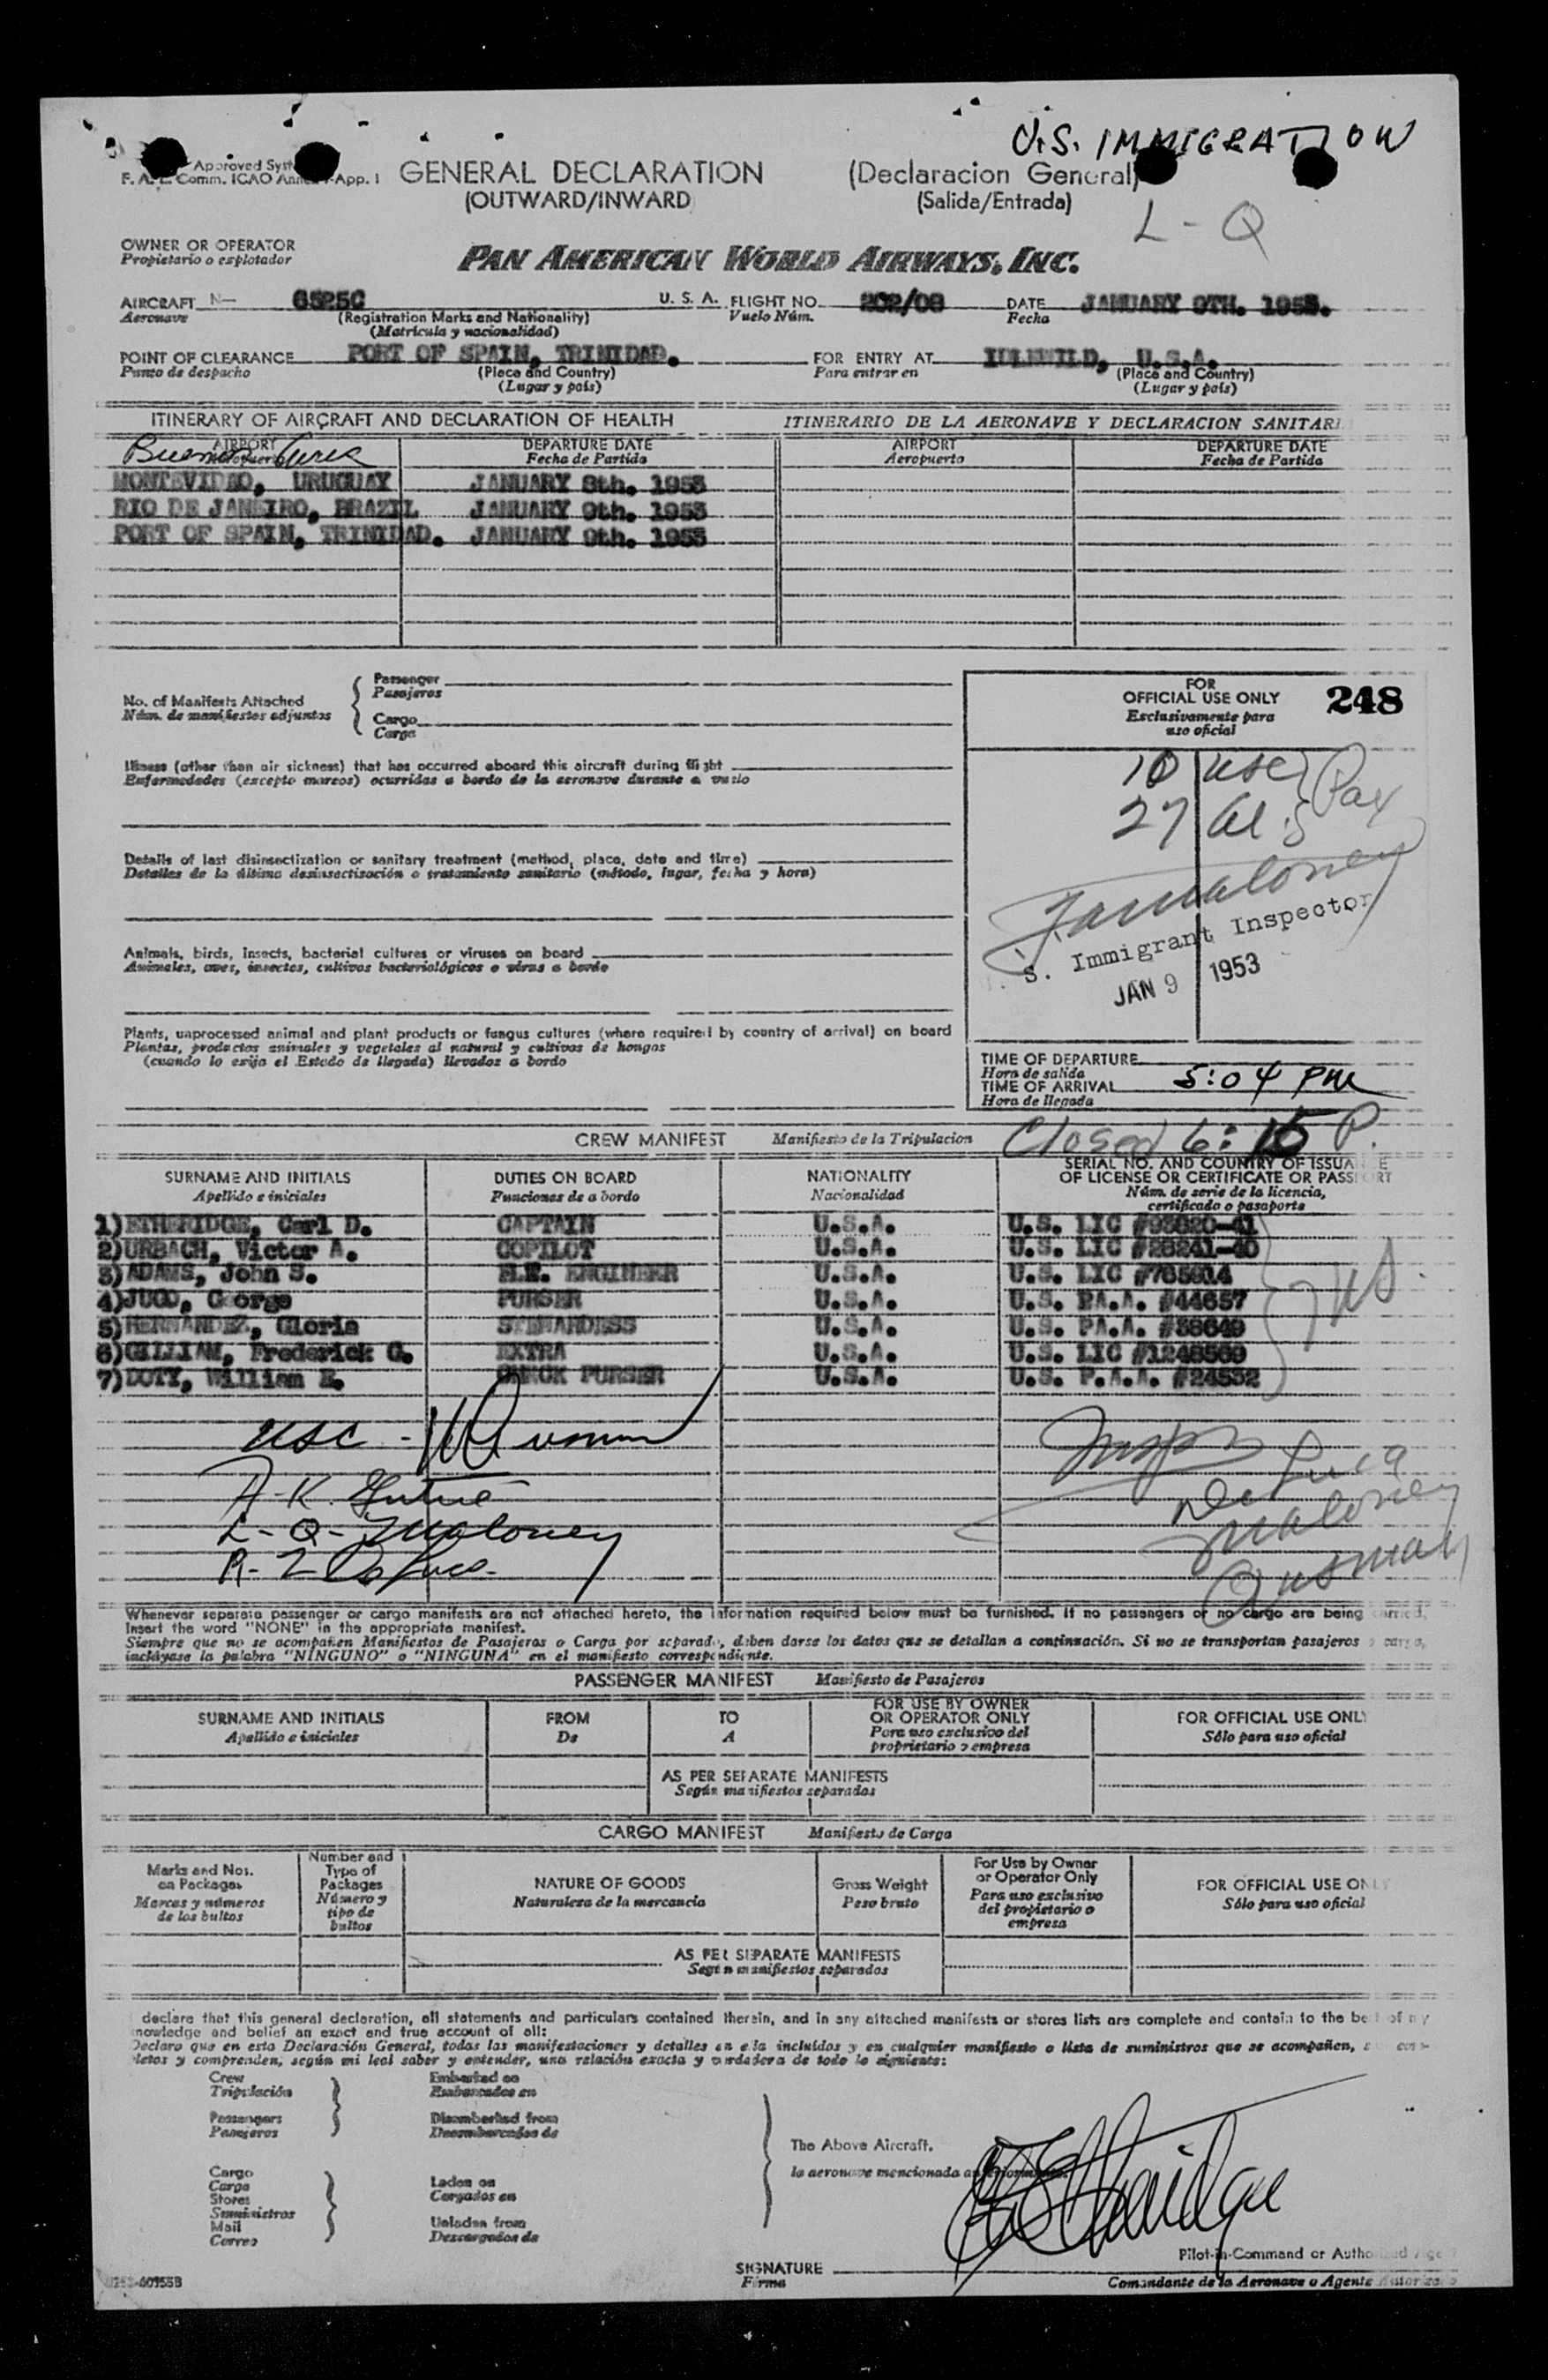 U.S. IMMIGRATION
Approved
F. A. L. Comm. ICAO App. 1
GENERAL DECLARATION (Declaracion General)
(OUTWARD/INWARD) (Salida/Entrada)
L - Q
OWNER OR OPERATOR
Propietario o explotador
PAN AMERICAN WORLD AIRWAYS, INC.
AIRCRAFT N- 6525C U. S. A. FLIGHT NO. 202/08 DATE JANUARY 9TH. 1953.
Aeronave (Registration Marks and Nationality) Vuelo Núm. Fecha
(Matricula y nacionalidad)
POINT OF CLEARANCE PORT OF SPAIN, TRINIDAD. FOR ENTRY AT IDLEWILD, U.S.A.
Punto de despacho (Place and Country) Para entrar en (Place and Country)
(Lugar y país) (Lugar y país)
ITINERARY OF AIRCRAFT AND DECLARATION OF HEALTH ITINERARIO DE LA AERONAVE Y DECLARACION SANITARI
AIRPORT DEPARTURE DATE AIRPORT DEPARTURE DATE
Buenos Aires Fecha de Partida Aeropuerto Fecha de Partida
MONTEVIDEO, URUGUAY JANUARY 8th. 1953
RIO DE JANEIRO, BRAZIL JANUARY 9th. 1953
PORT OF SPAIN, TRINIDAD. JANUARY 9th. 1953
No. of Manifests Attached
Núm. de manifiestos adjuntos
Passenger
Pasajeros
Cargo
Carga
FOR
OFFICIAL USE ONLY 248
Exclusivamente para
uso oficial
10 USC Pax
27 Al.s
Illness (other than air sickness) that has occurred aboard this aircraft during flight
Enfermedades (excepto mareos) ocurridas a bordo de la aeronave durante a vuelo
Details of last disinsectization or sanitary treatment (method, place, date and time)
Detalles de la última desinsectisación o tratamiento sanitario (método, lugar, fecha y hora)
Maloney
S. Immigrant Inspector
JAN 9 1953
Animals, birds, insects, bacterial cultures or viruses on board
Animales, aves, insectos, cultivos bacteriológicos o virus a bordo
Plants, unprocessed animal and plant products or fungus cultures (where required by country of arrival) on board
Plantas, productos animales y vegetales al natural y cultivos de hongos
(cuando lo exija el Estado de llegada) llevados a bordo
TIME OF DEPARTURE
Hora de salida
TIME OF ARRIVAL 5:04 PM
Hora de llegada
CREW MANIFEST Manifiesto de la Tripulacion Closed 6:15 P.
SURNAME AND INITIALS DUTIES ON BOARD NATIONALITY SERIAL NO. AND COUNTRY OF ISSUANCE
Apellido e iniciales Funciones de a bordo Nacionalidad OF LICENSE OR CERTIFICATE OR PASSPORT
Núm. de serie de la licencia,
certificado o pasaporte
1) ETHERIDGE, Carl D. CAPTAIN U.S.A. U.S. LIC #93620-41
2) URBACH, Victor A. COPILOT U.S.A. U.S. LIC #28241-40
3) ADAMS, John S. ENGINEER U.S.A. U.S. LIC
4) JUGO, George PURSER U.S.A. U.S. PA.A. #44657
5) HERNANDEZ, Gloria STEWARDESS U.S.A. U.S. PA.A. #38649
6) GILLIAM, Frederick G. EXTRA U.S.A. U.S. LIC #1248569
7) DOTY, William E. CHECK PURSER U.S.A. U.S. P.A.A. #24532
USC -
A-K.
L-Q- Maloney
R-Z De Luca
Insps
De Luca
Maloney
Whenever separate passenger or cargo manifests are not attached hereto, the information required below must be furnished. If no passengers or no cargo are being carried,
Insert the word "NONE" in the appropriate manifest.
Siempre que no se acompañen Manifiestos de Pasajeros o Carga por separado, deben darse los datos que se detallan a continuación. Si no se transportan pasajeros o carga,
inclúyase la palabra "NINGUNO" o "NINGUNA" en el manifiesto correspondiente.
PASSENGER MANIFEST Manifiesto de Pasajeros
SURNAME AND INITIALS FROM TO FOR USE BY OWNER FOR OFFICIAL USE ONLY
Apellido e iniciales De A OR OPERATOR ONLY Sólo para uso oficial
Para uso exclusivo del
proprietario o empresa
AS PER SEPARATE MANIFESTS
Según manifiestos separados
CARGO MANIFEST Manifiesto de Carga
Marks and Nos.
on Packages
Marcas y números
de los bultos
Number and
Type of
Packages
Número y
tipo de
bultos
NATURE OF GOODS
Naturaleza de la mercancia
Gross Weight
Peso bruto
For Use by Owner
or Operator Only
Para uso exclusivo
del propietario o
empresa
FOR OFFICIAL USE ONLY
Sólo para uso oficial
AS PER SEPARATE MANIFESTS
Según manifiestos separados
declare that this general declaration, all statements and particulars contained therein, and in any attached manifests or stores lists are complete and contain to the best of my
knowledge and belief an exact and true account of all:
Declaro que en esta Declaración General, todas las manifestaciones y detalles en ella incluídos y en cualquier manifiesto o lista de suministros que se acompañen,
letos y comprenden, según mi leal saber y entender, una relación exacta y verdadera de todo lo siguiente:
Crew
Tripulación
Passengers
Pasajeros
Embarked on
Embarcados en
Disembarked from
Desembarcados de
Cargo
Carga
Stores
Suministros
Mail
Correo
Laden on
Cargados en
Unladen from
Descargados de
The Above Aircraft.
la aeronave mencionada anteriormente.
Pilot-in-Command or Authorized Age
SIGNATURE
Firma
Comandante de la Aeronave o Agente Autorizado